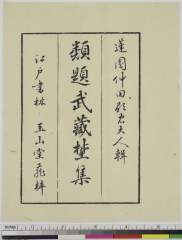 蓮園仲田顕忠大人輯
類題武蔵野集
江戸書林 玉山堂發梓